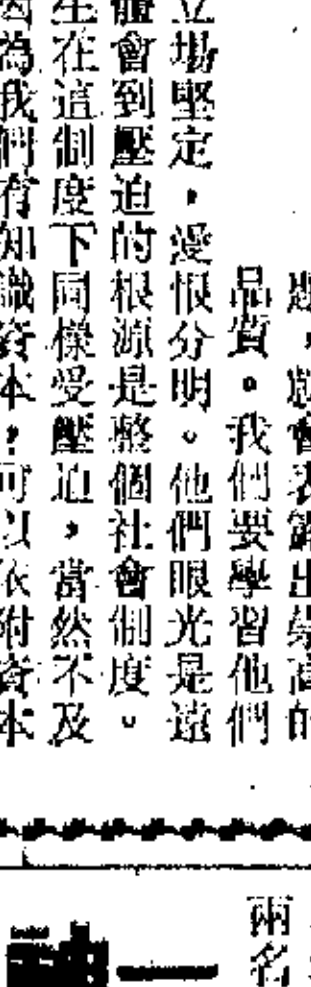 ，就會表露出崇高的
品質。我們要學習他們
立場堅定，愛恨分明。他們眼光是遠
體會到壓迫的根源是整個社會制度。
生在這個度下同樣受壓迫，當然不及
因為我們有知識資本，可以依附資本
兩名